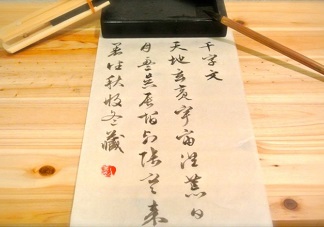 千字文
天地玄黃宇宙洪荒日
月盈昃辰宿列張寒來
暑往秋收冬藏